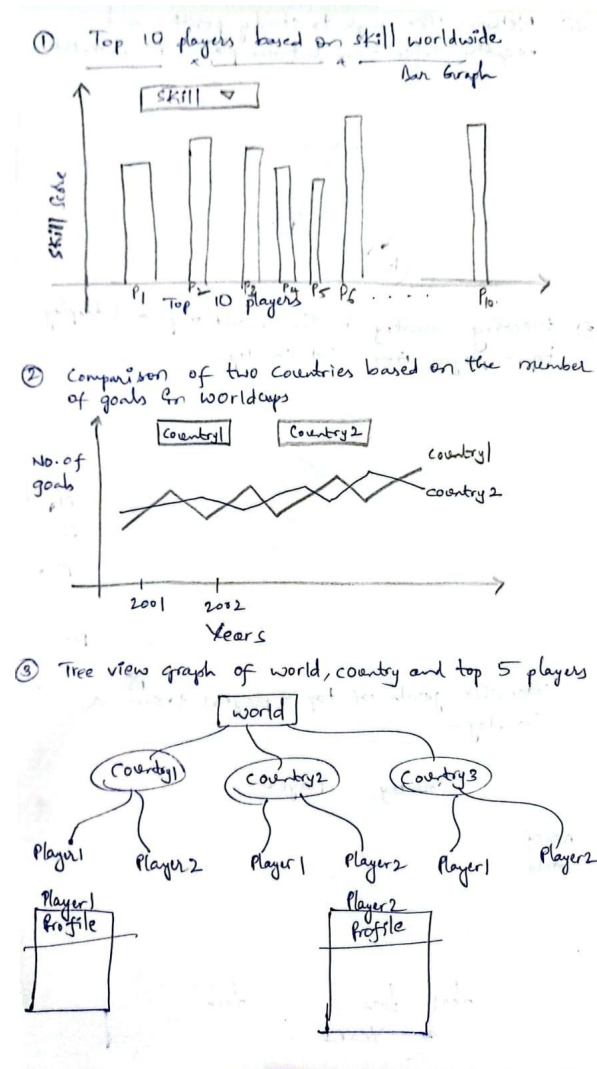 ① Top 10 players based on skill worldwide
Bar Graph
Skill ▽
Skill Score
P1 P2 P3 P4 P5 P6 . . . . P10.
Top 10 players
② Comparison of two countries based on the number
of goals in worldcups
Country1 Country2
No. of
goals
Country1
country2
2001 2002
Years
③ Tree view graph of world, country and top 5 players
world
Country1 Country2 Country3
Player1 Player2 Player1 Player2 Player1 Player2
Player1
Profile
Player2
Profile